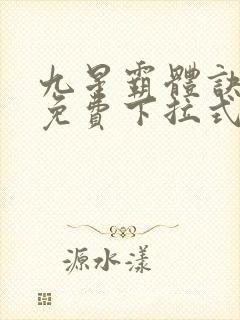 九星霸體訣
免費下拉式
源水漾